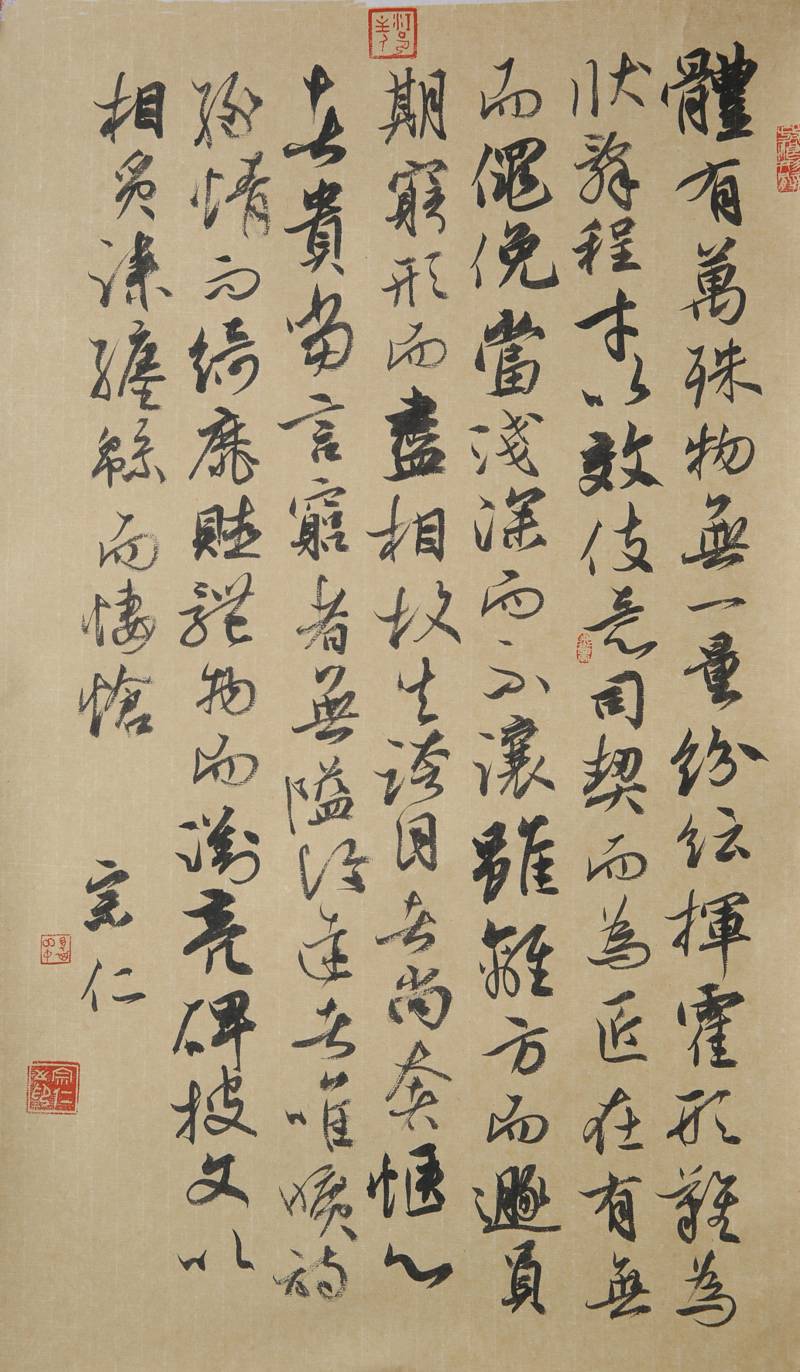 體有萬殊物無一量紛紜揮霍形難為
狀辭程才以效伎意司契而為匠在有無
而僶俛當淺深而不讓雖離方而遯員
期窮形而盡相故夫誇目者尚奢愜心
者貴當言窮者無隘論達者唯曠詩
緣情而綺靡賦體物而瀏亮碑披文以
相質誄纏綿而悽愴
宗仁